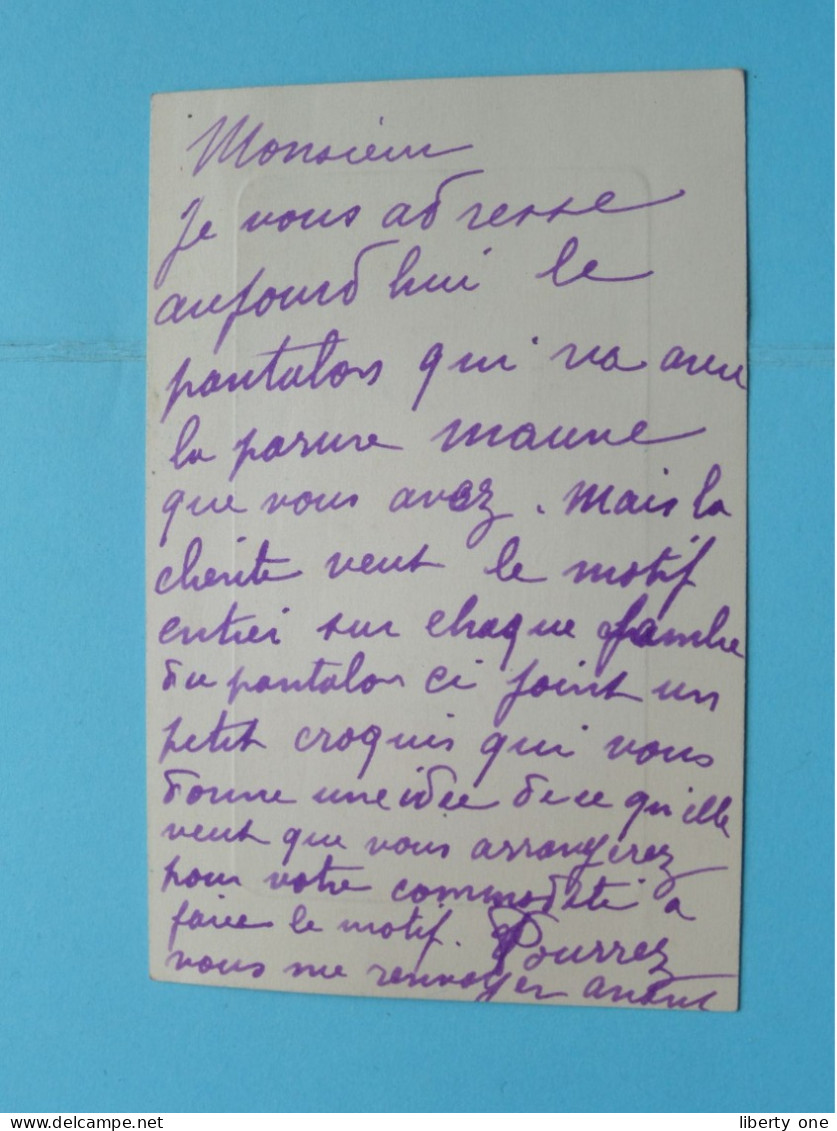 Monsieur
Je vous adresse
aujourd'hui le
pantalon qui va avec
la parure mauve
que vous avez. Mais la
cliente veut le motif
entier sur chaque jambe
du pantalon ci joint un
petit croquis qui vous
donne une idée de ce qu'elle
veut que vous arrangerez
pour votre commodité à
faire le motif. Pourrez
vous me renvoyer avant
www.delcampe.net
liberty one